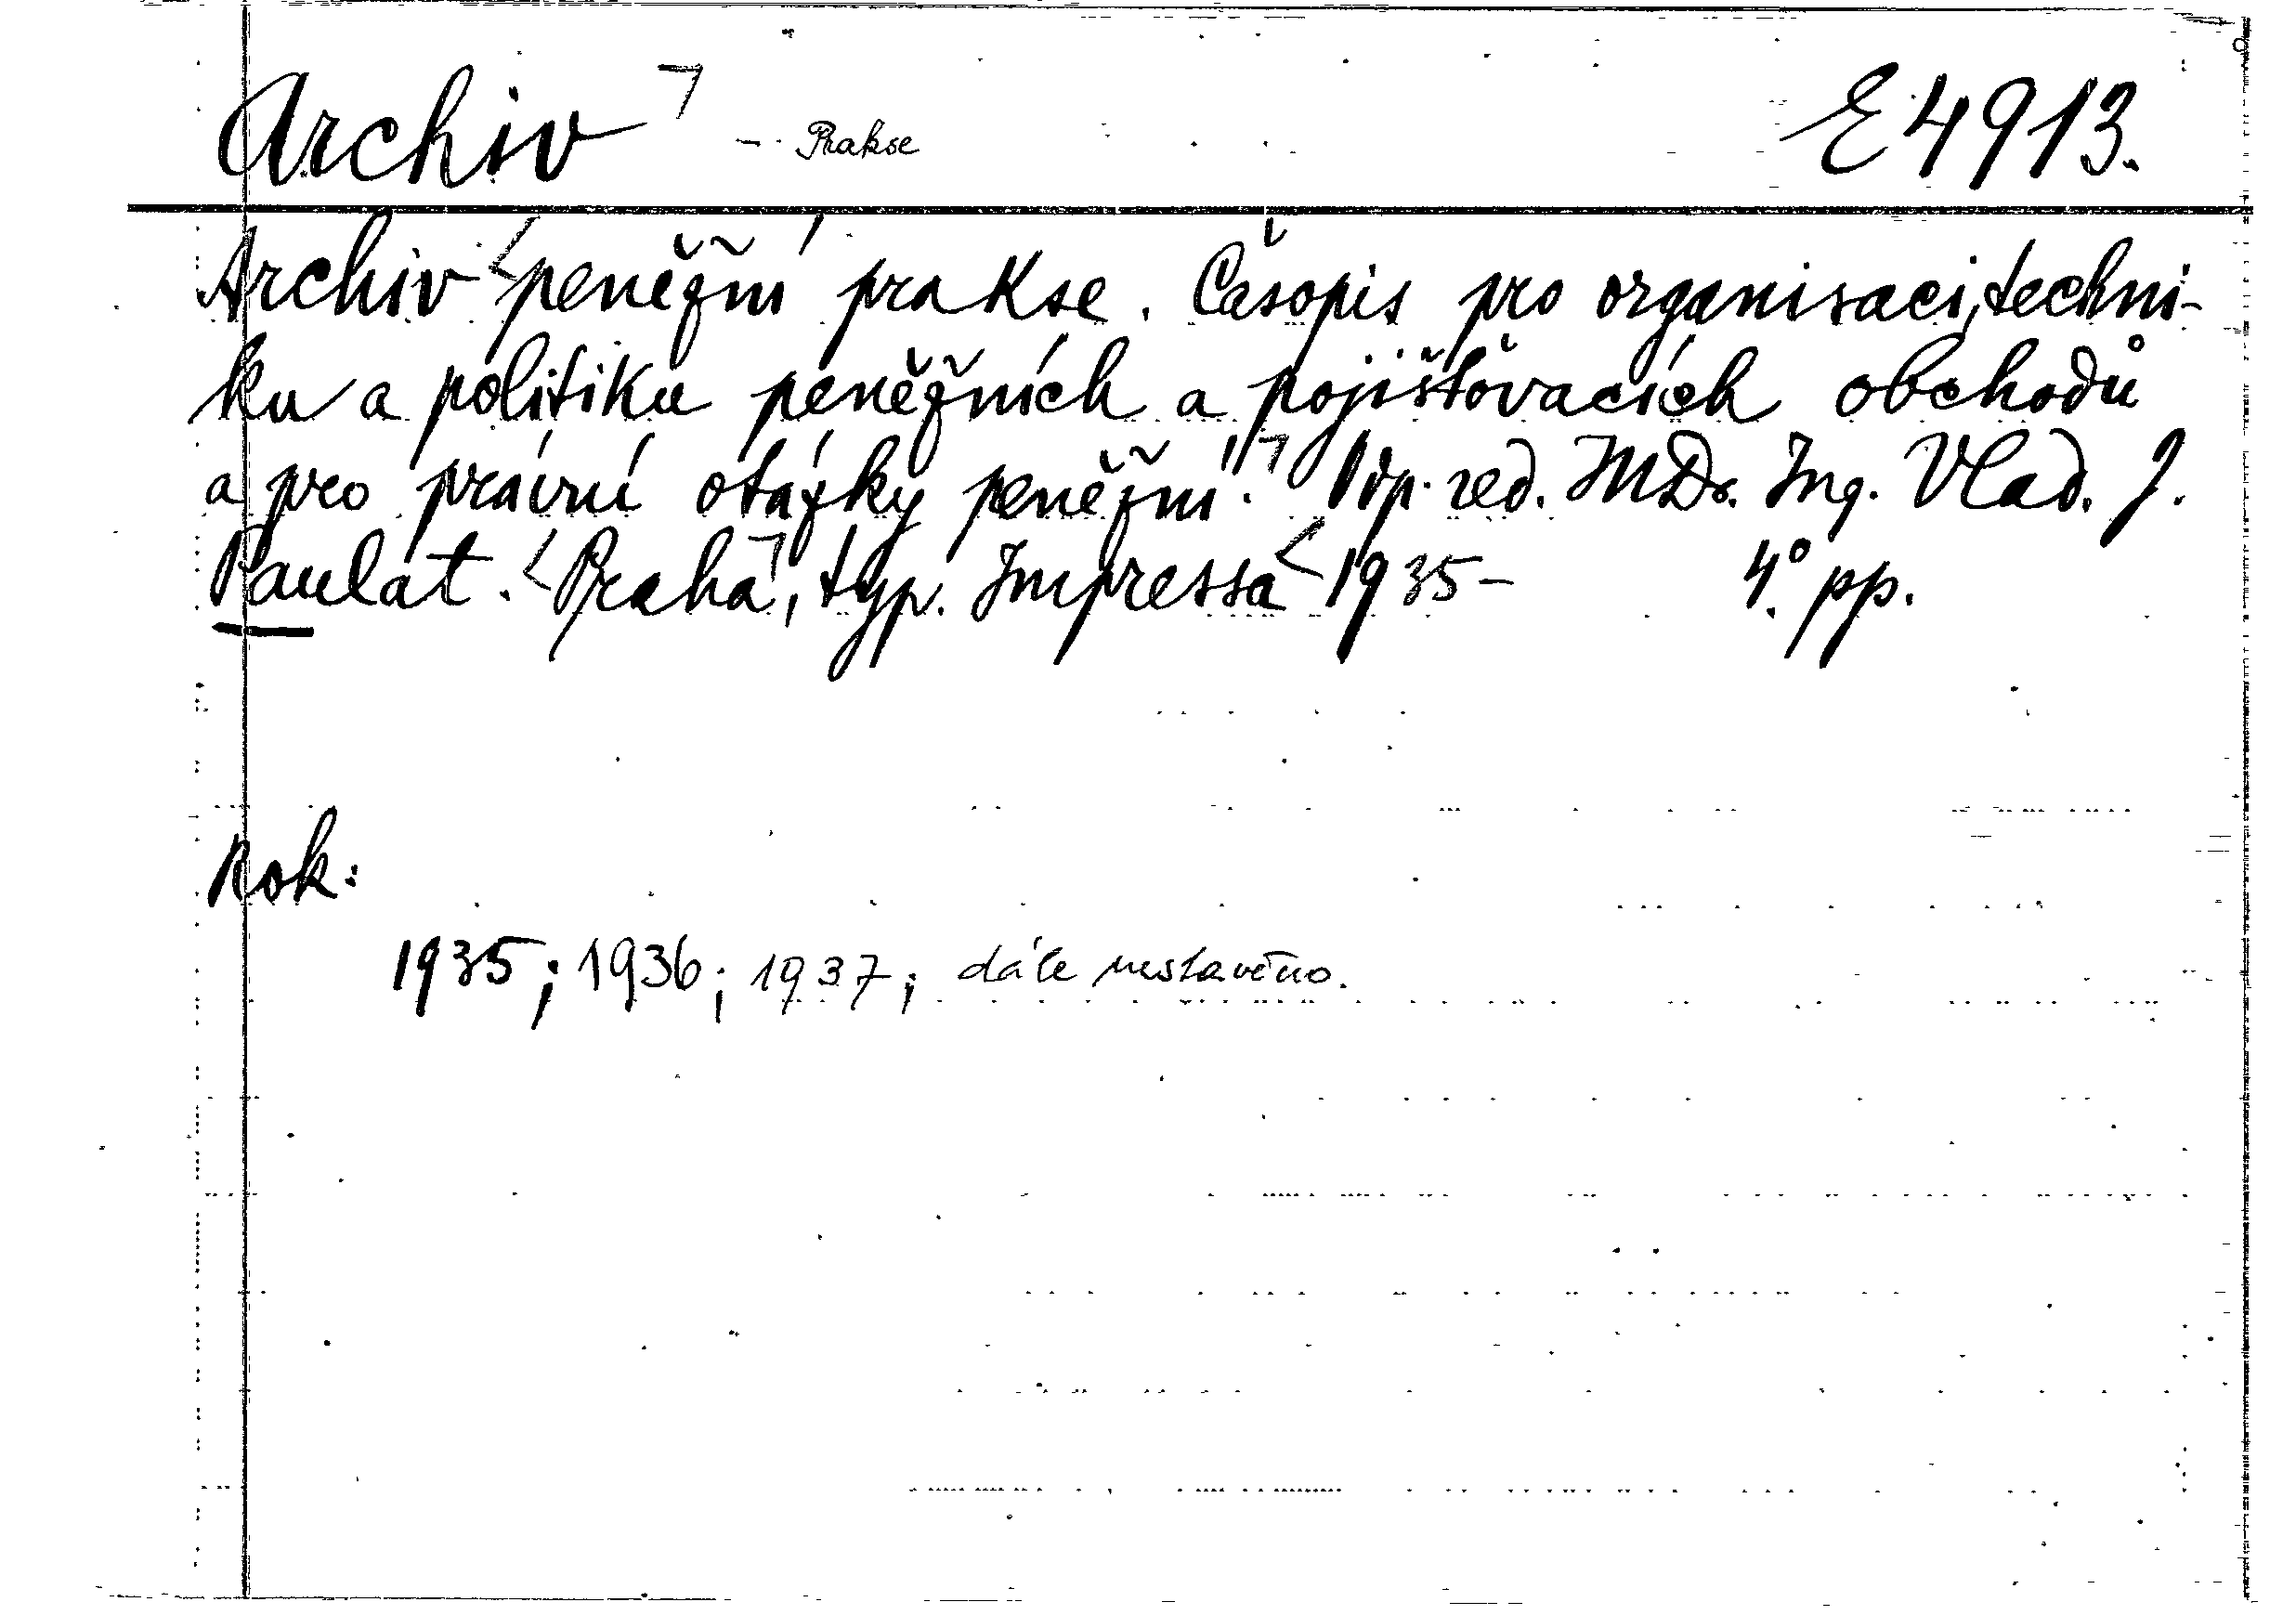 Archiv - Prakse E 4913.
Archiv peněžní prakse. Časopis pro organisaci, techni-
ku a politiku peněžních a pojišťovacích obchodů
a pro právní otázky peněžní. Odp. red. MDr. Ing. Vlad. J.
Paulat. Praha, typ. Impressa 1935- 4° pp.
Rok:
1935; 1936; 1937; dále nestavěno.